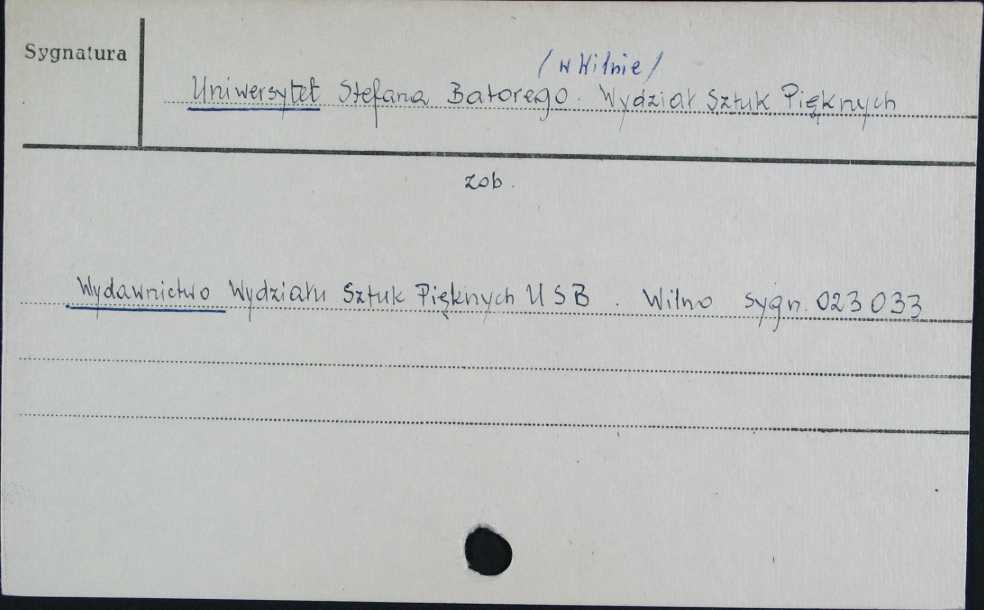 Sygnatura
/w Wilnie/
Uniwersytet Stefana Batorego. Wydział Sztuk Pięknych
zob.
Wydawnictwo Wydziału Sztuk Pięknych USB. Wilno sygn. 023033